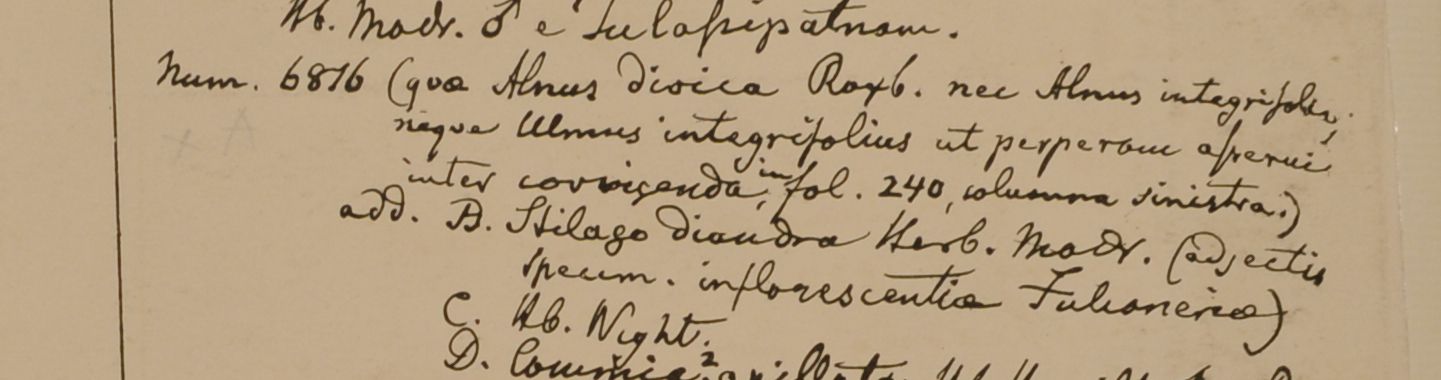 Hb. Madr. ♂ e Sulassipatnam.
Num. 6816 (quæ Alnus dioica Roxb. nec Alnus integrifolia,
neque Ulmus integrifolius ut perperam asserui
inter corrigenda, in fol. 240, columna sinistra.)
add. B. Stilago diandra Herb. Madr. (adjectis
specim. inflorescentiæ
C. Hb. Wight.
D.